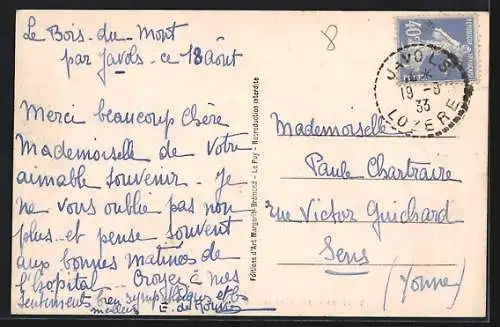 Le Bois-du-Mont
par Javols - ce 18 Août
8
40c
JAVOLS
19 -8
33
LOZERE
Merci beaucoup Chère
Mademoiselle de votre
aimable souvenir - Je
ne vous oublie pas non
plus - et pense souvent
aux bonnes matinées de
l'hopital... Croyez à mes
Sentiments bien sympathiques et les
meilleurs
Editions d'Art Margerit-Brémond - Le Puy - Reproduction interdite
Mademoiselle
Paule Chartraire
rue Victor Guichard
Sens
(Yonne)